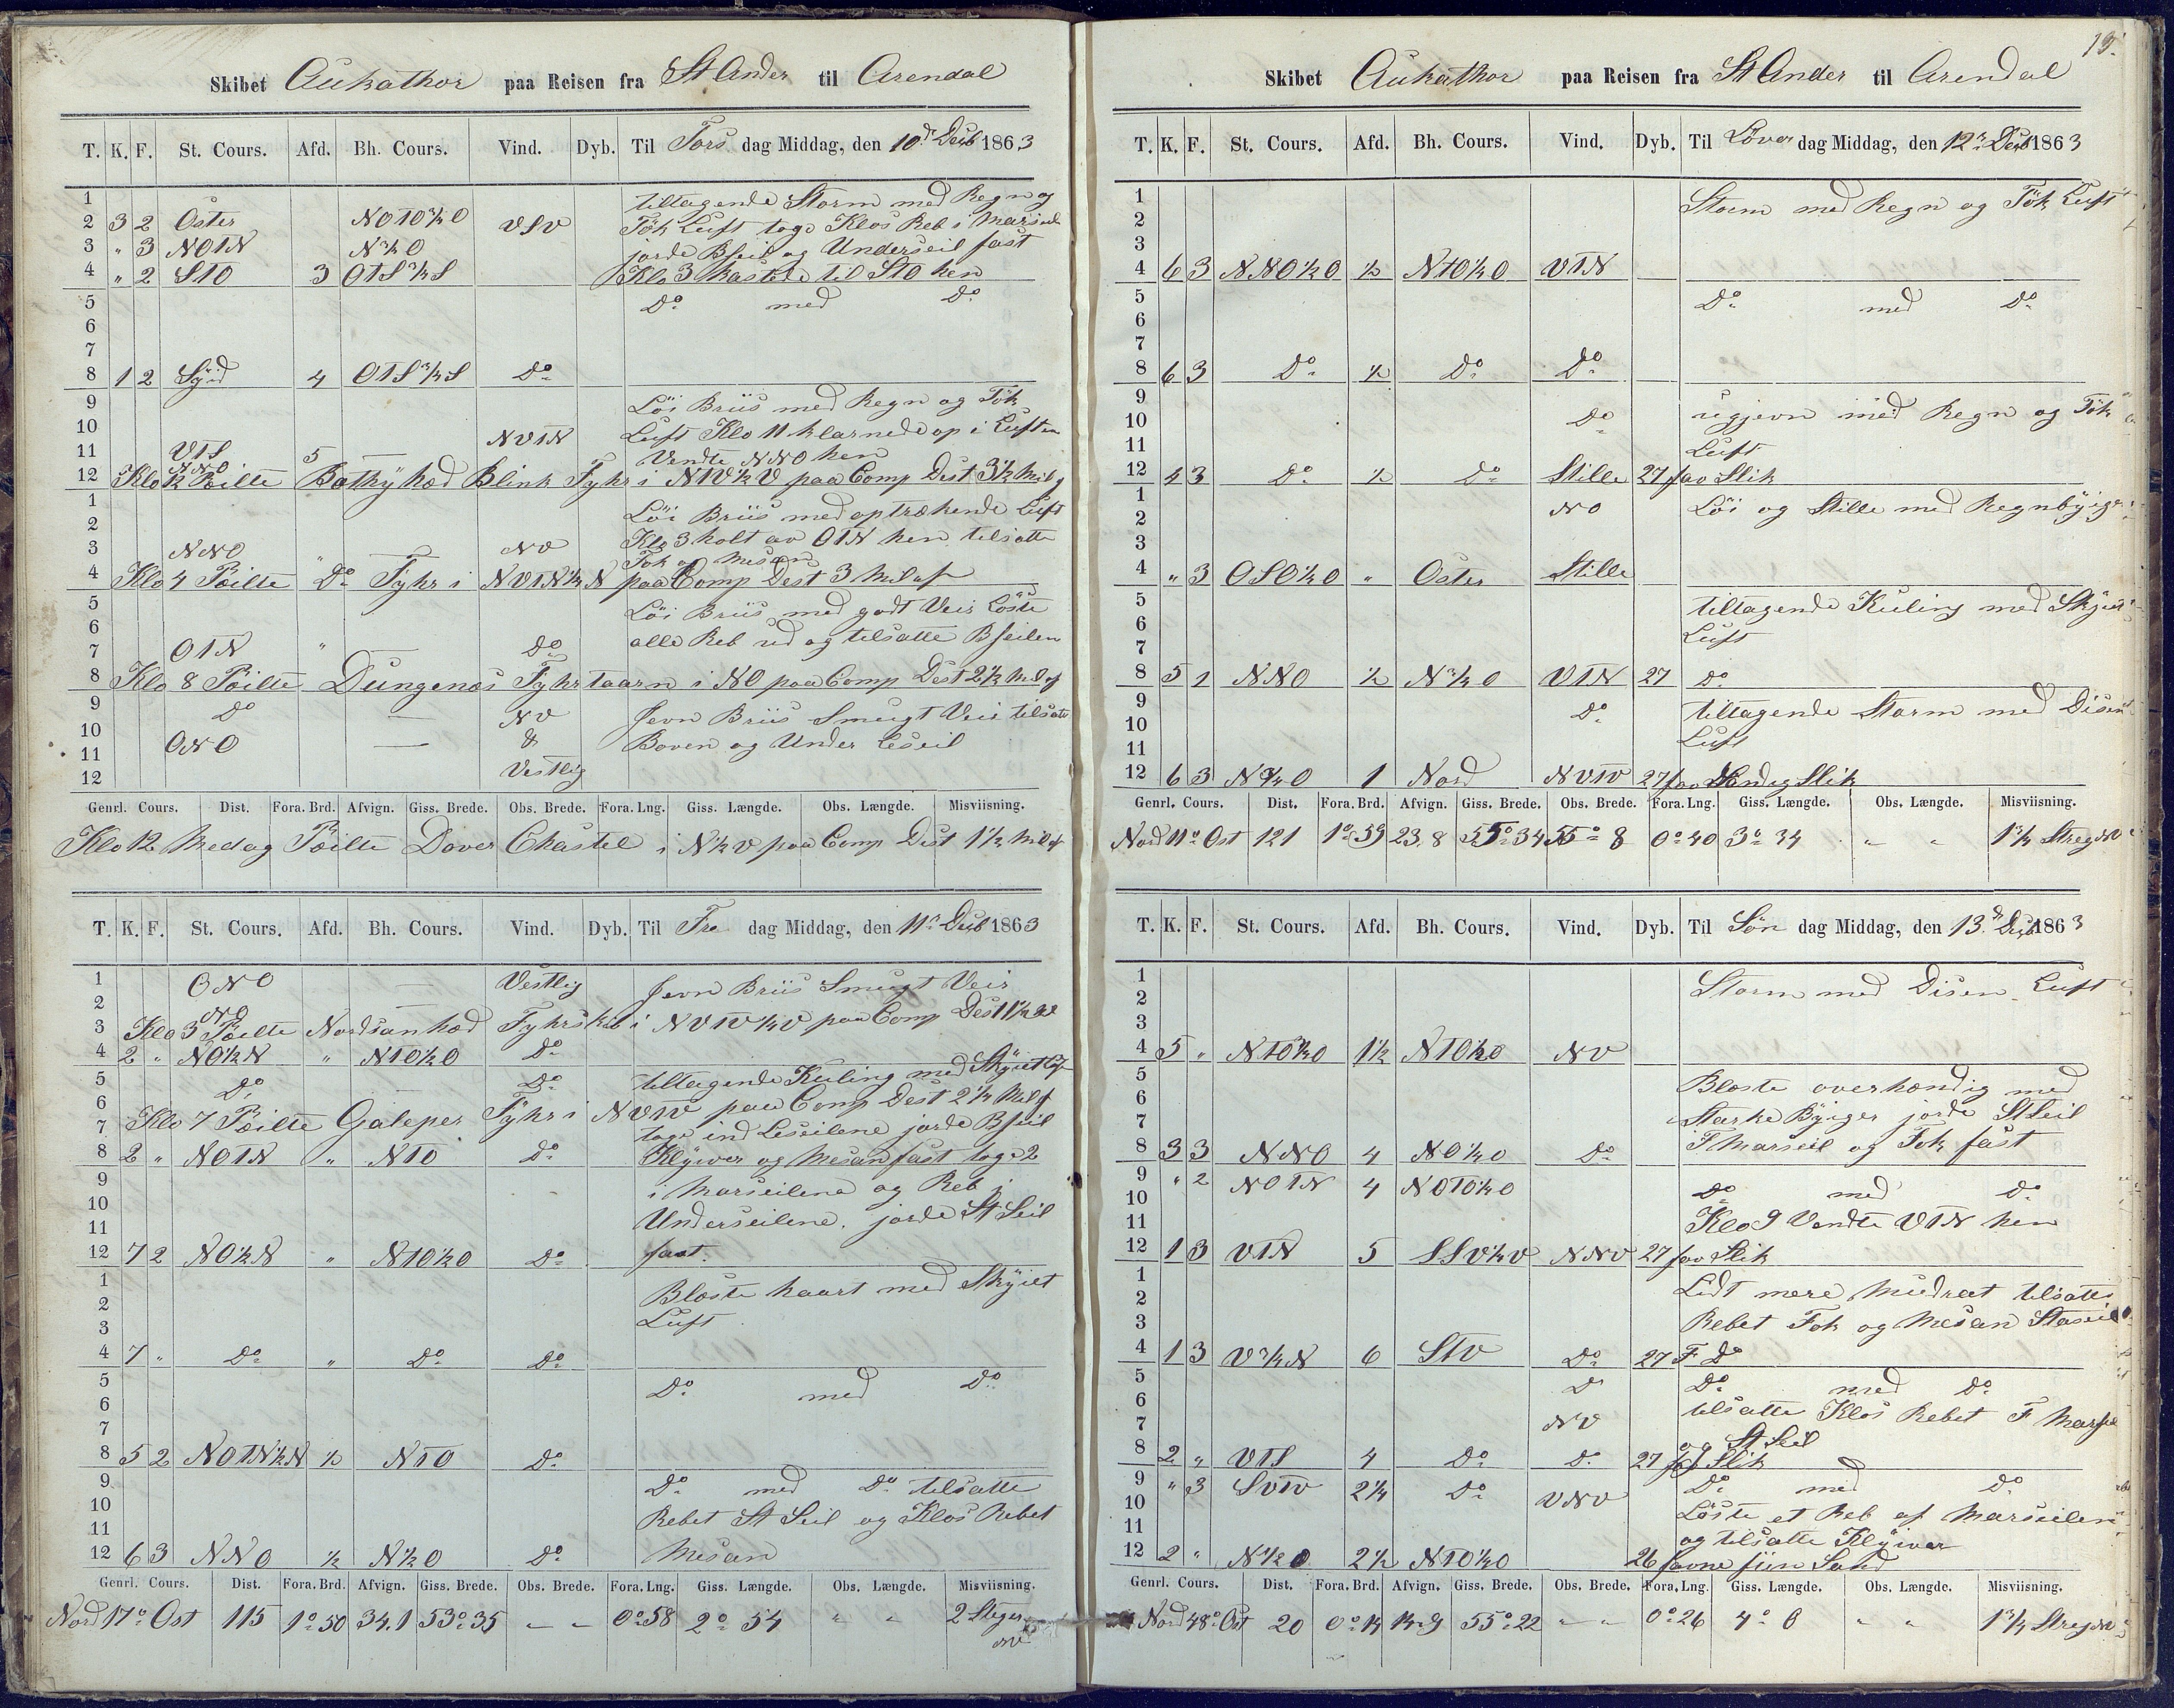 Skibet Aukathor paa Reisen fra St Ander til Arendal
T. K. F. St. Cours. Afd. Bh. Cours. Vind. Dyb. Til Tors dag Middag, den 10de Decb 1863
1 tiltagende Storm med Regn og
2 3 2 Oster NOTO¾O VSV Tök Luft toge Klos Reb i
3 " 3 NOTN N¾O jorde Bseil og Underseil fast
4 " 2 STO 3 OTS¾S Klo 3 til STO hen
5 Do med Do
6
7
8 1 2 Syd 4 OTS¾S Do
9 Löi Briis med Regn og Tök
10 NVTN Luft Klo 11 klarnede op i Luften
11 VTS 5 — Vendte NNO hen
NNO
12 Klo 12 Peilte Blink Fyhr i NTV½V paa Comp Dest 3½ Mil
1 Löi Briis med optrækende Luft
2
3 NNO " — NV Klo 3 holt av OTN hen tilsatte
Fok og Mesan
4 Klo 4 Peilte Do Fyhr i NVTN½N paa Comp Dest 3 Mil af
5 Löi Briis med godt Veir Löste
6 alle Reb ud og tilsatte Bseilen
7 OTN " — Do
8 Klo 8 Peilte Dungenæs Fyhrtaarn i NO paa Comp Dest 2½ Mil af
9 Do — NV Jevn Briis Smugt Veir tilsatte
10 & Boven og Under Leseil
11 ONO —
12 Vestlig
Genrl. Cours. Dist. Fora. Brd. Afvign. Giss. Brede. Obs. Brede. Fora. Lng. Giss. Længde. Obs. Længde. Misviisning.
Klo 12 Medag Peilte Dover Chastel i N½V paa Comp Dist 1½ Mil af
T. K. F. St. Cours. Afd. Bh. Cours. Vind. Dyb. Til Fre dag Middag, den 11te Decb 1863
1 ONO — Vestlig Jevn Briis Smugt Veir
2 NO —
3 Klo 3 Peilte Nordsanhæd Fyhrskib i NVTV½V paa Comp Dest 1½
4 2 " NO½N " NTO½O Do
5 Do — Do tiltagende Kuling med Skyiet
6
7 Klo 7 Peilte Galeper Fyhr i NVTV paa Comp Dest 2¼ Mil af
toge ind Leseilene jorde Bseil
8 2 " NOTN " NTO Do Klyiver og Mesan fast toge 2
9 i Marseilene og Reb i
10 Underseilene. jorde St Seil
11
12 7 2 NO½N " NTO½O Do fast.
1 Blæste haart med Skyiet
2 Luft
3
4 7 " Do " Do Do
5 Do med Do
6
7
8 5 2 NOTN½N ½ NTO Do
9 Do med Do tilsatte
10 Rebet St Seil og Klos Rebet
11
12 6 3 NNO ½ N½O Do Mesan
Genrl. Cours. Dist. Fora. Brd. Afvign. Giss. Brede. Obs. Brede. Fora. Lng. Giss. Længde. Obs. Længde. Misviisning.
Nord 17° Ost 115 1°50 34.1 53°35 " " 0°58 2° 54 " " 2 Steger
NV
19.
Skibet Aukathor paa Reisen fra St Ander til Arendal
T. K. F. St. Cours. Afd. Bh. Cours. Vind. Dyb. Til Löver dag Middag, den 12te Decb 1863
1 Storm med Regn og Tök Luft
2
3
4 6 3 NNO½O ½ NTO½O VTN
5 Do med Do
6
7
8 6 3 Do ½ Do Do
9 ugjevn med Regn og Tök
10 Do
11 Luft
12 4 3 Do ½ Do Stille 27 fav Slik
1 NO Löi og Stille med Regnbyiger
2
3
4 " 3 OSO½O " Oster Stille
5 tiltagende Kuling med Skyiet
6 Luft
7
8 5 1 NNO ½ N¾O VTN 27 Do
9 tiltagende Storm med Disen
10 Do Luft
11
12 6 3 N¾O 1 Nord NVTV 27 fav Sandig Slik
Genrl. Cours. Dist. Fora. Brd. Afvign. Giss. Brede. Obs. Brede. Fora. Lng. Giss. Længde. Obs. Længde. Misviisning.
Nord 11° Ost 121 1°59 23.8 55°34 55° 8 0°40 3° 34 " " 1¾ Streg NV
T. K. F. St. Cours. Afd. Bh. Cours. Vind. Dyb. Til Sön dag Middag, den 13de Decb 1863
1 Storm med Disen Luft
2
3
4 5 " NTO½O 1½ NTO½O NV
5 Blæste overhændig med
6 Starke Byiger jorde St Seil
7
8 3 3 NNO 4 NO¼O Do F Marseil og Fok fast
9 " 2 NOTN 4 NOTO½O Do med Do
10
11 Klo 9 Vendte VTN hen
12 1 3 VTN 5 SSV½V NNV 27 fav Slik
1 Lidt mere Mudreret tilsatte
2
3 Rebet Fok og Mesan Staseil
4 1 3 V¾N 6 STV Do 27 F Do
5 Do Do med Do
6 tilsatte Klos Rebet F Marseil
7 NV
og St Seil
8 2 " VTS 4 Do Do 27 fav Slik
9 " 3 SVTV 2¼ Do VNV Do med Do
10 Löste et Reb af Marseilen
11 og tilsatte Klyiver
12 2 " N½O 2½ NTO½O 26 favne fiin Sand
Genrl. Cours. Dist. Fora. Brd. Afvign. Giss. Brede. Obs. Brede. Fora. Lng. Giss. Længde. Obs. Længde. Misviisning.
Nord 48° Ost 20 0°14 14.9 55°22 " " 0°26 4° 0 " " 1¾ Streg NV